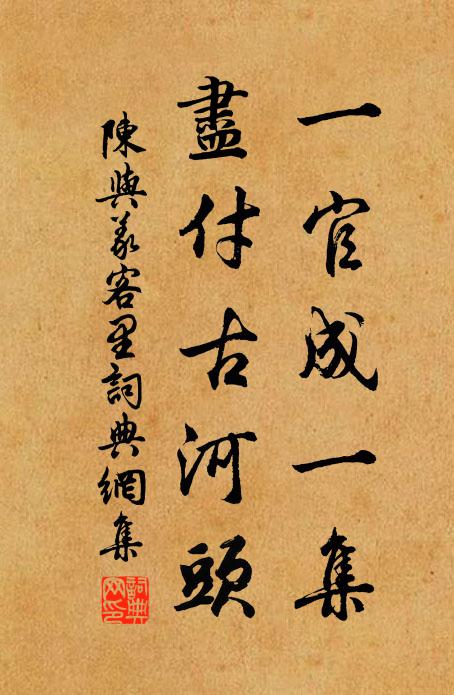 一官成一集
盡付古河頭
陳與義客里詞典網集
詞典網印